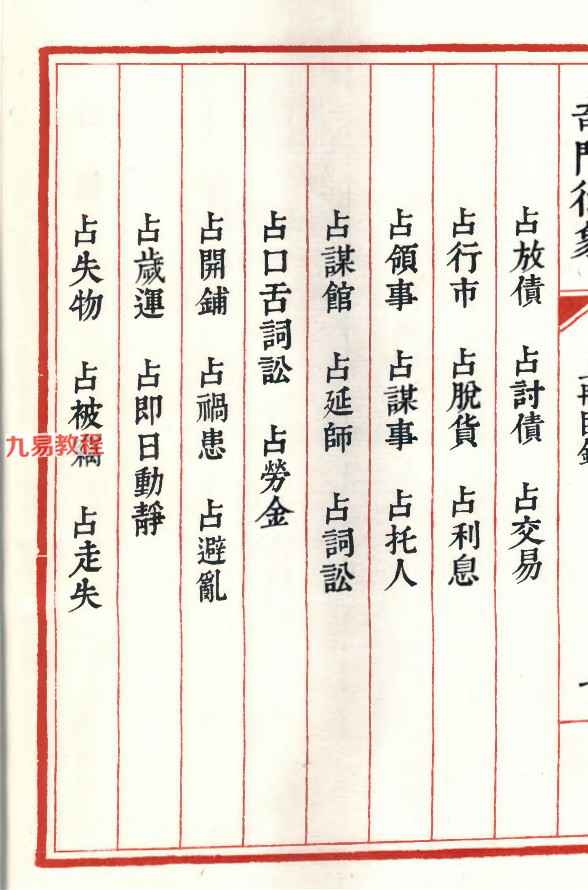 占放債 占討債 占交易
占行市 占脫貨 占利息
占領事 占謀事 占托人
占謀館 占延師 占詞訟
占口舌詞訟 占勞金
占開鋪 占禍患 占避亂
占歲運 占即日動靜
占失物 占被 占走失
九易教程